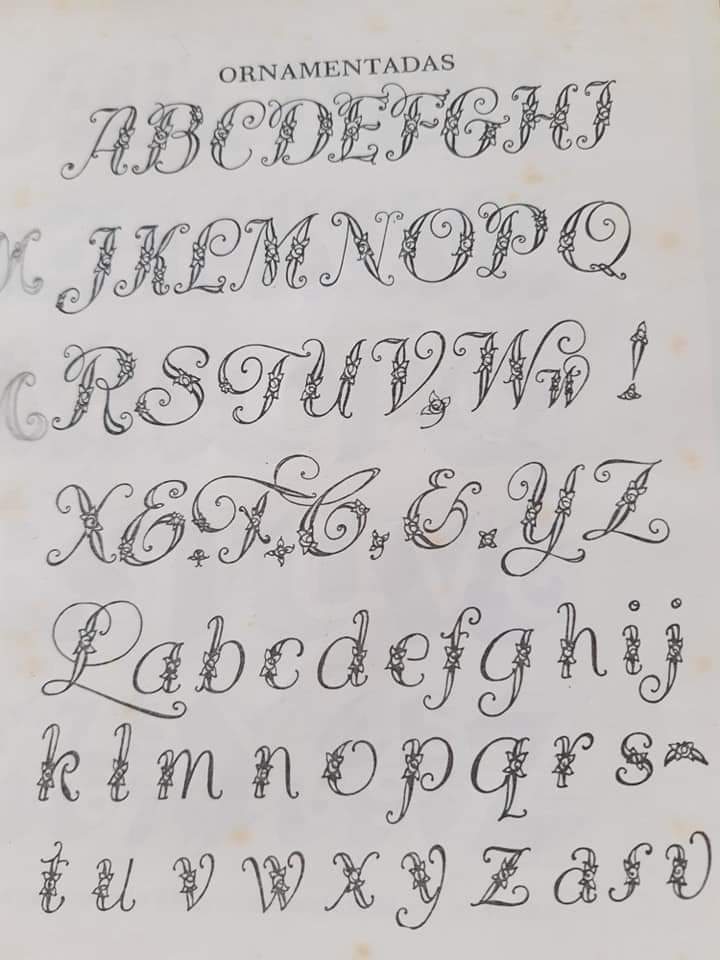 ORNAMENTADAS
A B C D E F G H I
J K L M N O P Q
R S T U V , W w !
X E . F . C , & . Y Z
L a b c d e f g h i j
k l m n o p q r s ~
t u v w x y z a s v